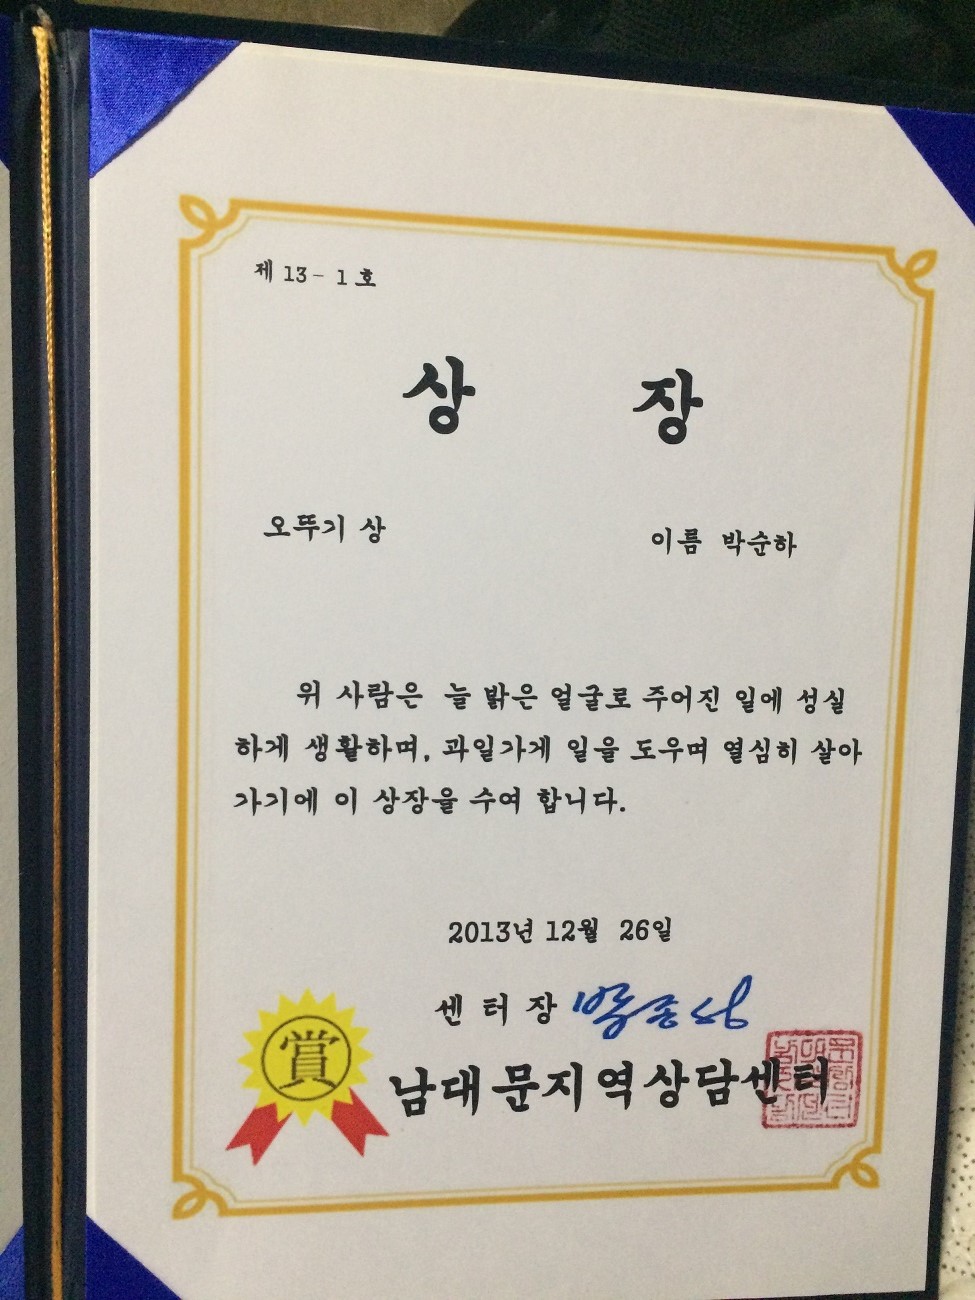 제 13- 1 호
상 장
오뚜기 상 이름 박순하
위 사람은 늘 밝은 얼굴로 주어진 일에 성실
하게 생활하며, 과일가게 일을 도우며 열심히 살아
가기에 이 상장을 수여 합니다.
2013년 12월 26일
센 터 장
賞
남대문지역상담센터